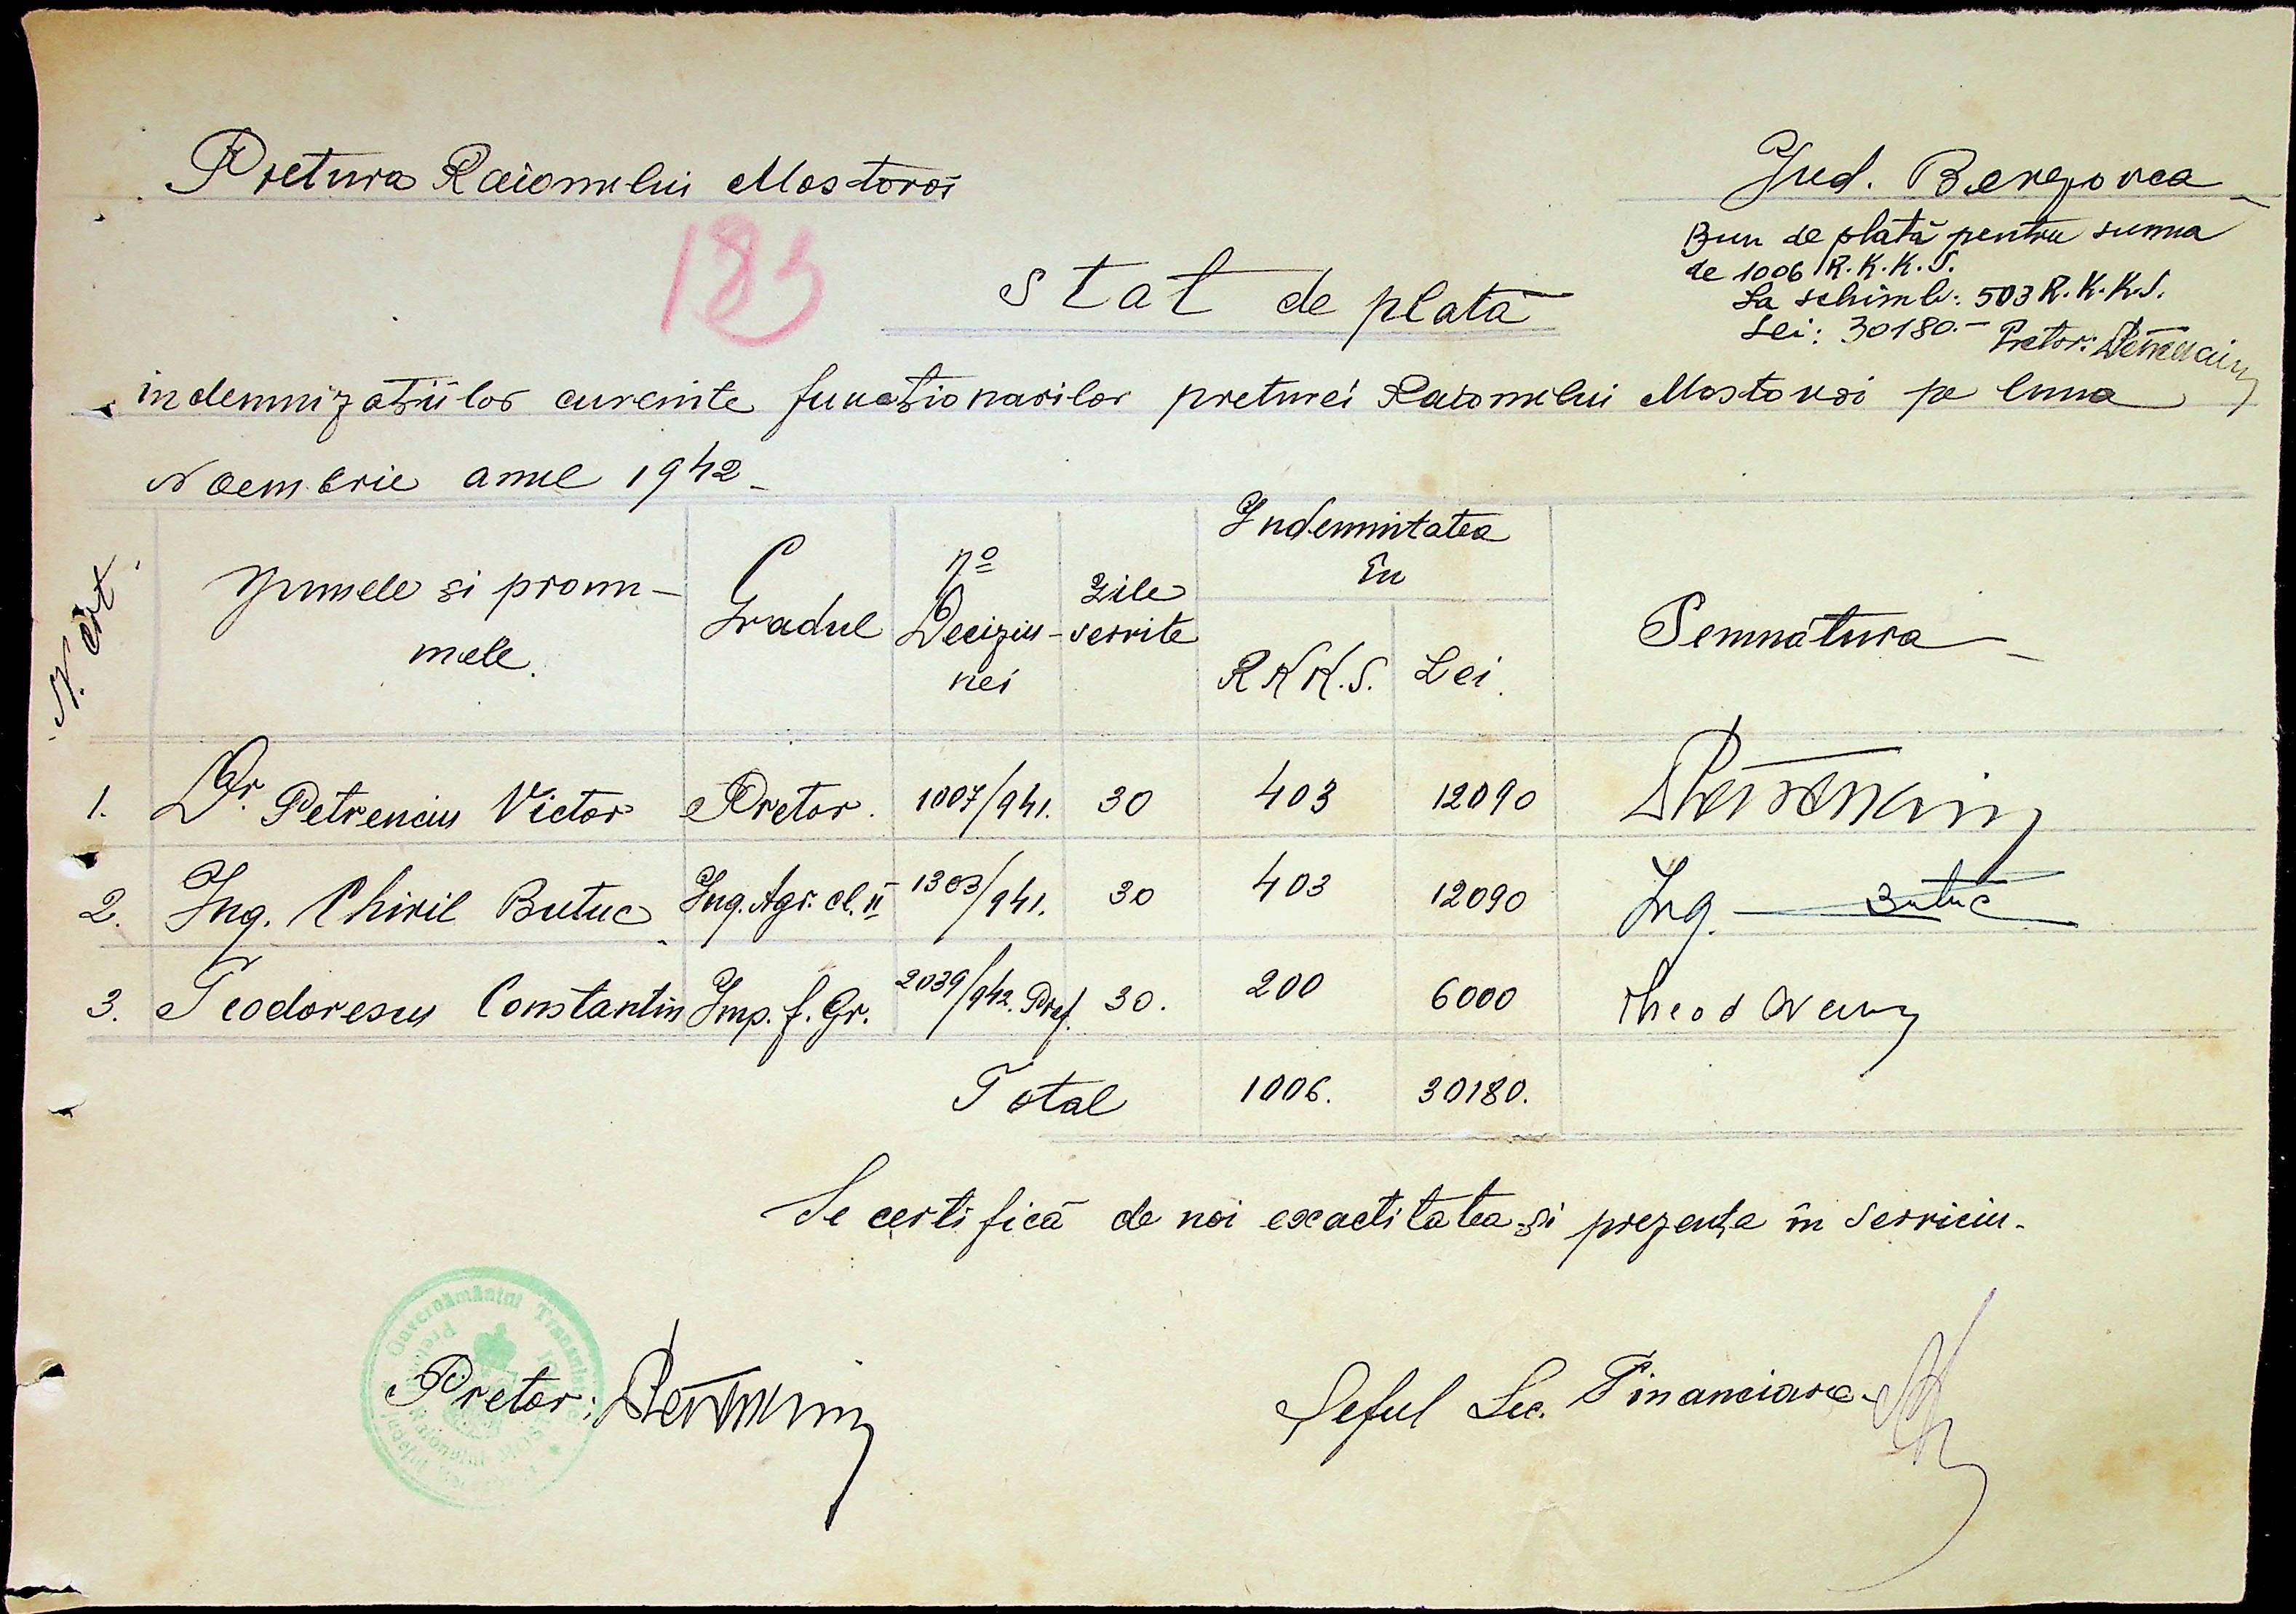 Pretura Raionului Mostovoi
Jud. Berezovca
183
Bun de plată pentru suma
de 1006 R.K.K.S.
La schimb: 503 R.K.K.S.
Lei: 30180.- Pretor:
Stat de plată
indemnizațiilor curente funcționarilor preturei Raionului Mostovoi pe luna
Noembrie anul 1942-
N. crt. Numele și pronu-mele. Gradul No Deciziu-nei Zile servite Indemnitatea În R.K.K.S. Lei. Semnătura
1. Dr. Petrenciu Victor Pretor. 1007/941. 30 403 12090
2. Ing. Chiril Butuc Ing. Agr. cl. II 1303/941. 30 403 12090 Ing. Butuc
3. Teodorescu Constantin Imp. f. Gr. 2039/942. Pref. 30. 200 6000
Total 1006. 30180.
Se certifică de noi exactitatea și prezența în serviciu.
Guvernământul Transnistriei
Pretor:
Șeful Sec. Financiare